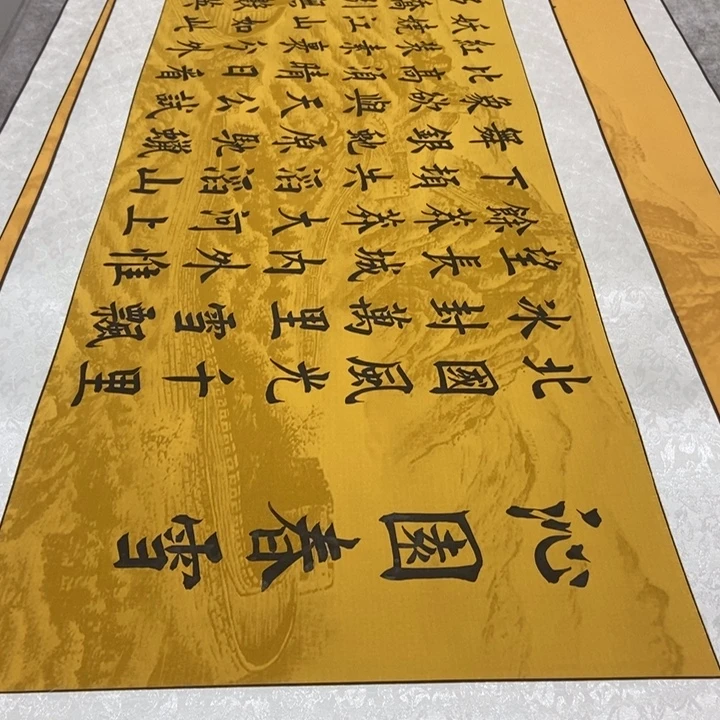 沁園春雪
北國風光千里
冰封萬里雪飄
望長城內外惟
餘莽莽大河上
下頓失滔滔山
舞銀蛇原馳蠟
象欲與天公試
比高須晴日看
紅裝素裹分外
妖嬈江山如此